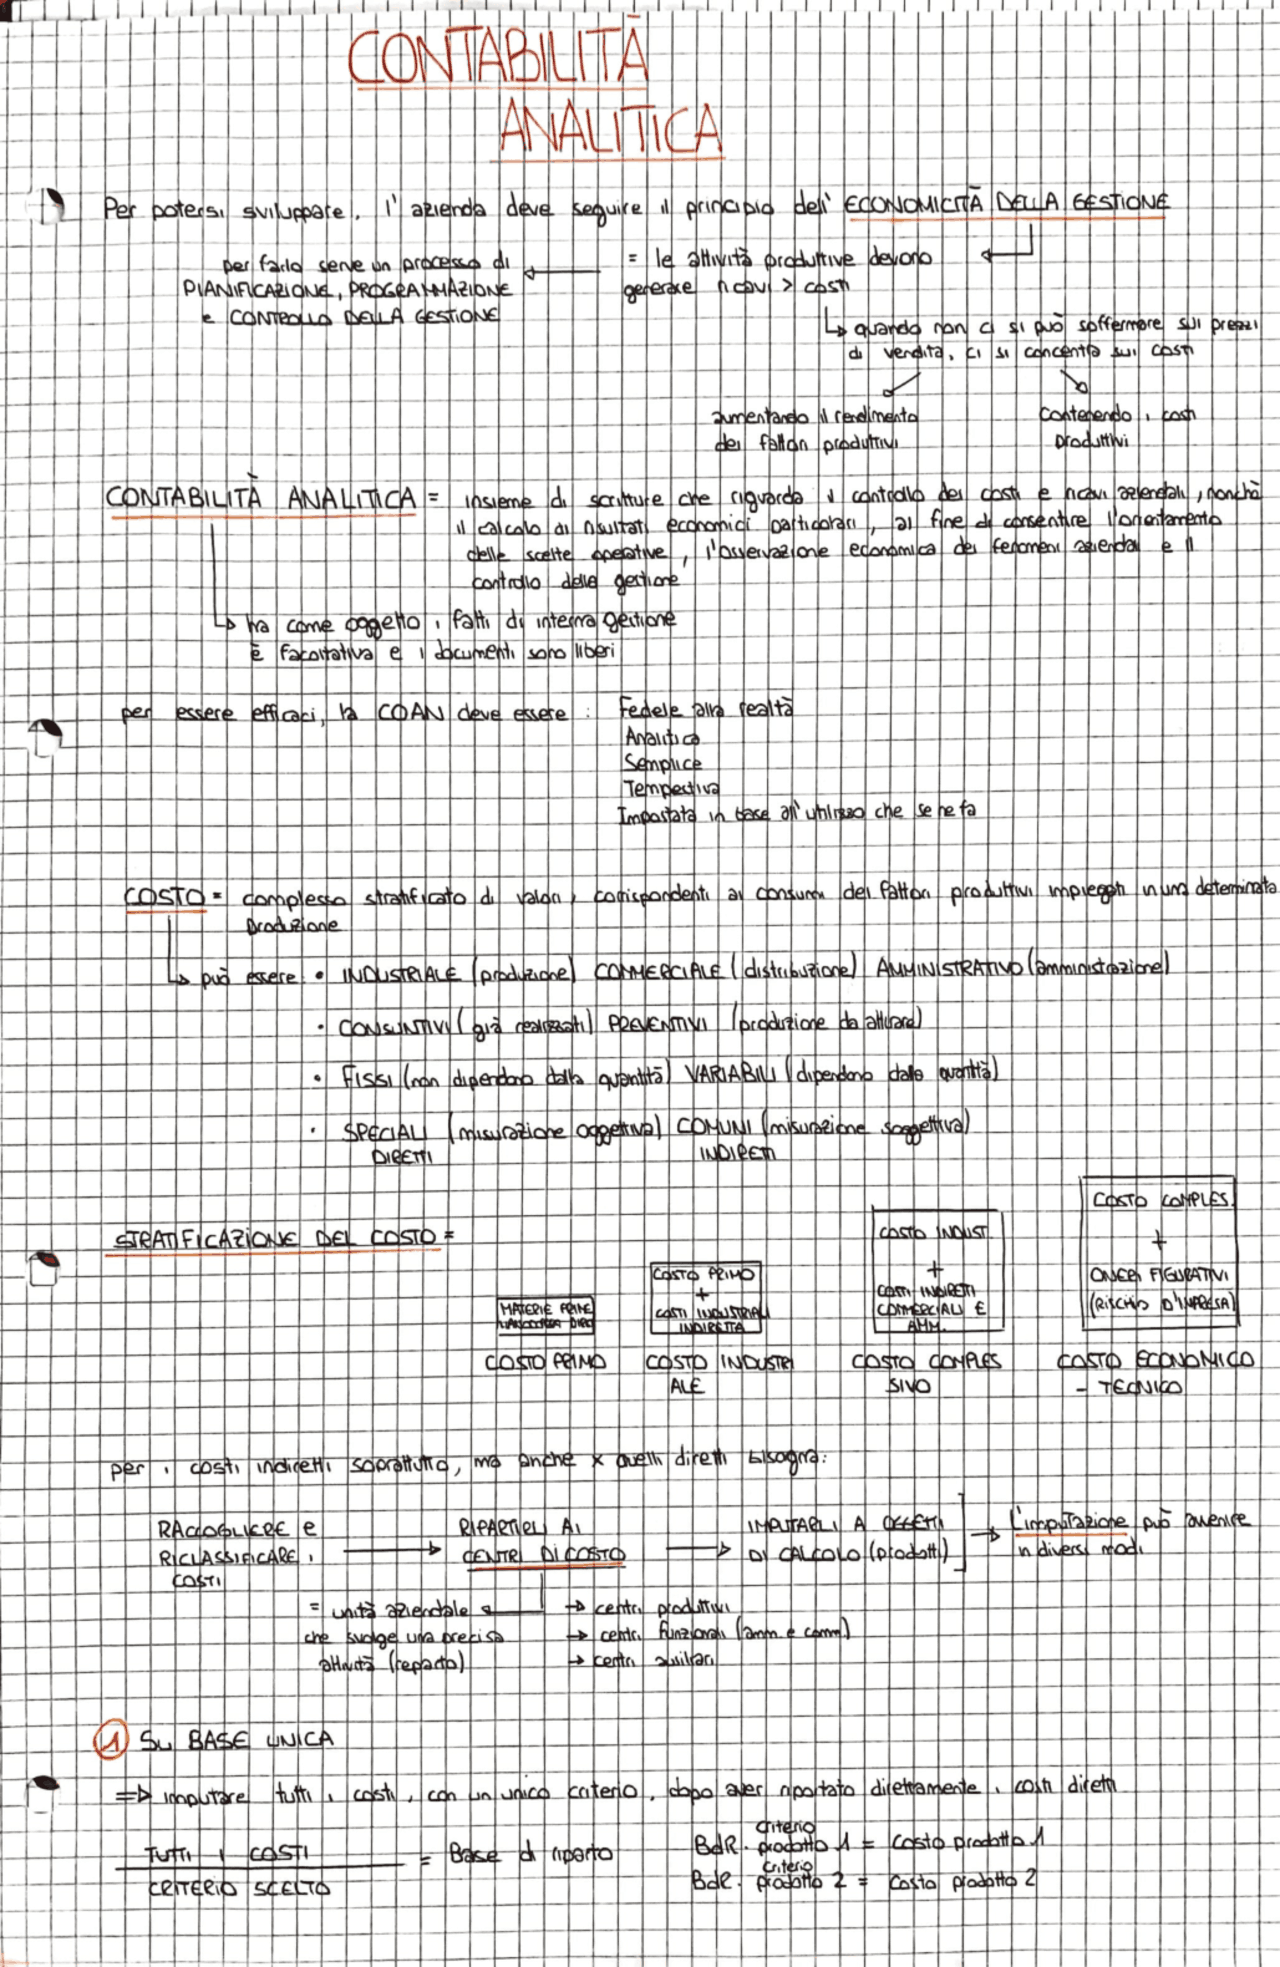 CONTABILITÀ
ANALITICA
Per potersi sviluppare, l'azienda deve seguire il principio dell'ECONOMICITÀ DELLA GESTIONE
= le attività produttive devono
generare ricavi > costi
per farlo serve un processo di
PIANIFICAZIONE, PROGRAMMAZIONE
e CONTROLLO DELLA GESTIONE
↳ quando non ci si può soffermare sui prezzi
di vendita, ci si concentra sui costi
aumentando il rendimento
dei fattori produttivi
contenendo i costi
produttivi
CONTABILITÀ ANALITICA = insieme di scritture che riguarda il controllo dei costi e ricavi aziendali, nonchè
il calcolo di risultati economici particolari, al fine di consentire l'orientamento
delle scelte operative, l'osservazione economica dei fenomeni aziendali e il
controllo della gestione
↳ ha come oggetto i fatti di interna gestione
è facoltativa e i documenti sono liberi
per essere efficaci, la COAN deve essere : Fedele alla realtà
Analitica
Semplice
Tempestiva
Impostata in base all'utilizzo che se ne fa
COSTO = complesso stratificato di valori, corrispondenti ai consumi dei fattori produttivi impiegati in una determinata
produzione
↳ può essere • INDUSTRIALE (produzione) COMMERCIALE (distribuzione) AMMINISTRATIVO (amministrazione)
• CONSUNTIVI (già realizzati) PREVENTIVI (produzione da attivare)
• FISSI (non dipendono dalla quantità) VARIABILI (dipendono dalla quantità)
• SPECIALI (misurazione oggettiva) COMUNI (misurazione soggettiva)
DIRETTI INDIRETTI
STRATIFICAZIONE DEL COSTO =
MATERIE PRIME
MANODOPERA DIRE
COSTO PRIMO
COSTO PRIMO
+
COSTI INDUSTRIALI
INDIRETTA
COSTO INDUSTRI
ALE
COSTO INDUST.
+
COSTI INDIRETTI
COMMERCIALI E
AMM.
COSTO COMPLES
SIVO
COSTO COMPLES.
+
ONERI FIGURATIVI
(RISCHIO D'IMPRESA)
COSTO ECONOMICO
- TECNICO
per i costi indiretti soprattutto, ma anche x quelli diretti bisogna:
RACCOGLIERE e
RICLASSIFICARE i
COSTI
RIPARTIRLI AI
CENTRI DI COSTO
IMPUTARLI A OGGETTI
DI CALCOLO (prodotti)
L'imputazione può avvenire
in diversi modi
= unità aziendale
che svolge una precisa
attività (reparto)
→ centri produttivi
→ centri funzionali (amm e comm)
→ centri ausiliari
1 SU BASE UNICA
⇒ imputare tutti i costi, con un unico criterio, dopo aver riportato direttamente i costi diretti
TUTTI I COSTI
CRITERIO SCELTO
= Base di riparto
BdR · criterio prodotto 1 = costo prodotto 1
BdR · criterio prodotto 2 = costo prodotto 2